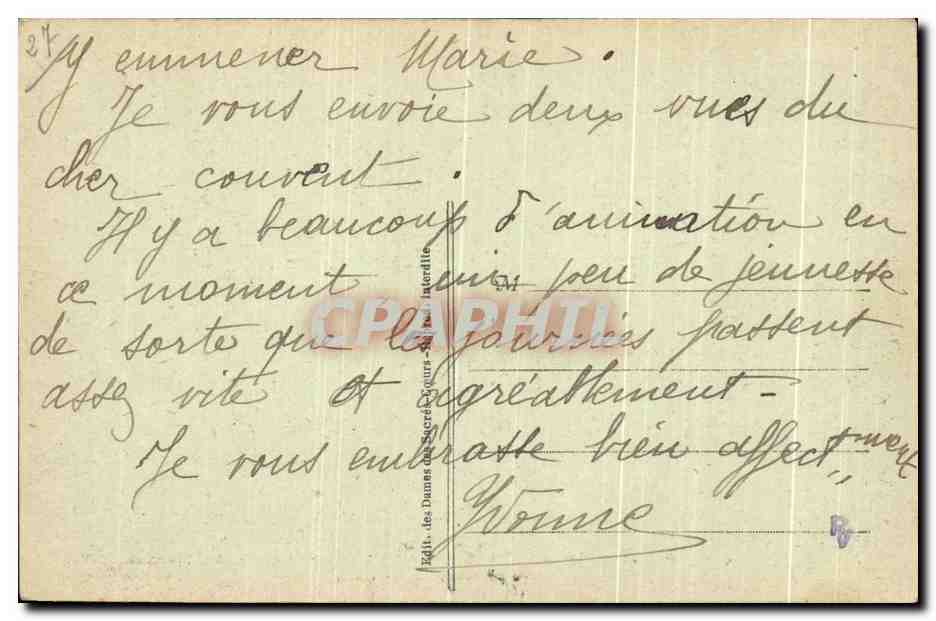 27
y emmener Marie.
Je vous envoie deux vues du
cher couvent.
Il y a beaucoup d'animation en
ce moment, un peu de jeunesse
de sorte que les journées passent
assez vite et agréablement -
Je vous embrasse bien affect,,ment
Yvonne
Edit. des Dames des Sacrés-Cœurs - Reprod. Interdite
CPAPHIL
RV